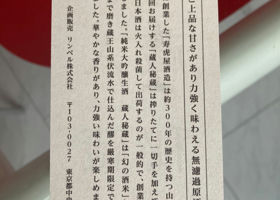 と上品な甘さがあり力強く味わえる無濾過原
創業した「寿虎屋酒造」は約300年の歴史を持つ山
回お届けする「蔵人秘蔵」は搾りたてに一切手を加え
日本酒は火入れ殺菌して出荷するのが一般的で、創業
ました。「純米大吟醸生酒 蔵人秘蔵」は「幻の酒米」
まで磨き蔵王山系伏流水で仕込んだ醪を厳寒期限定で
した。華やかな香りがあり、力強い味わいが楽しめま
企画販売 リンベル株式会社
〒103-0027 東京都中央